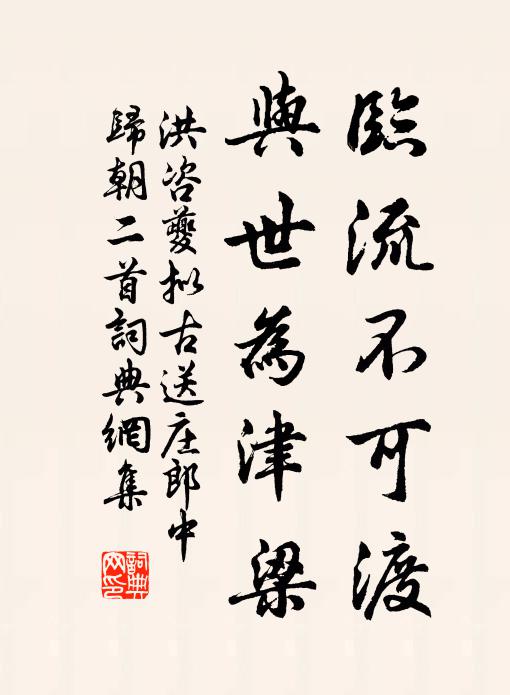 臨流不可渡
與世為津梁
洪咨夔擬古送庄郎中
歸朝二首詞典網集
詞典
网印